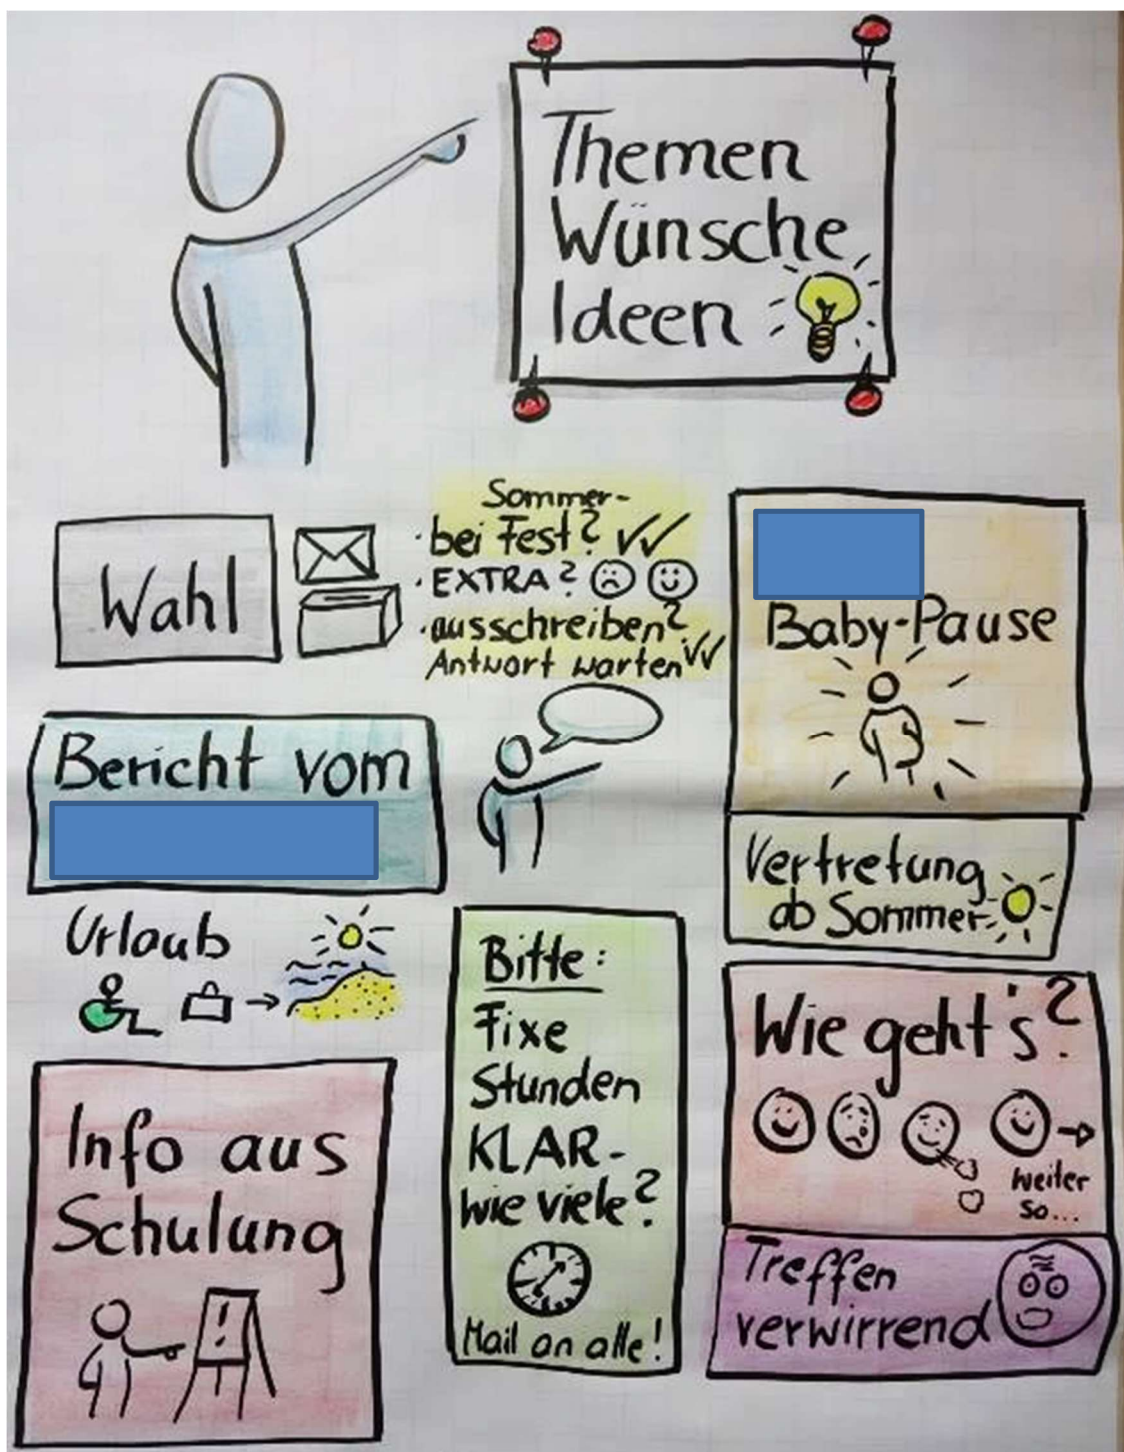 Themen
Wünsche
Ideen
Wahl
Sommer-
· bei Fest? ✓✓
· EXTRA?
· ausschreiben?
Antwort warten ✓✓
Baby-Pause
Bericht vom
Vertretung
ab Sommer
Urlaub
Bitte:
Fixe
Stunden
KLAR-
wie viele?
Mail an alle!
Wie geht's?
weiter
so...
Info aus
Schulung
Treffen
verwirrend